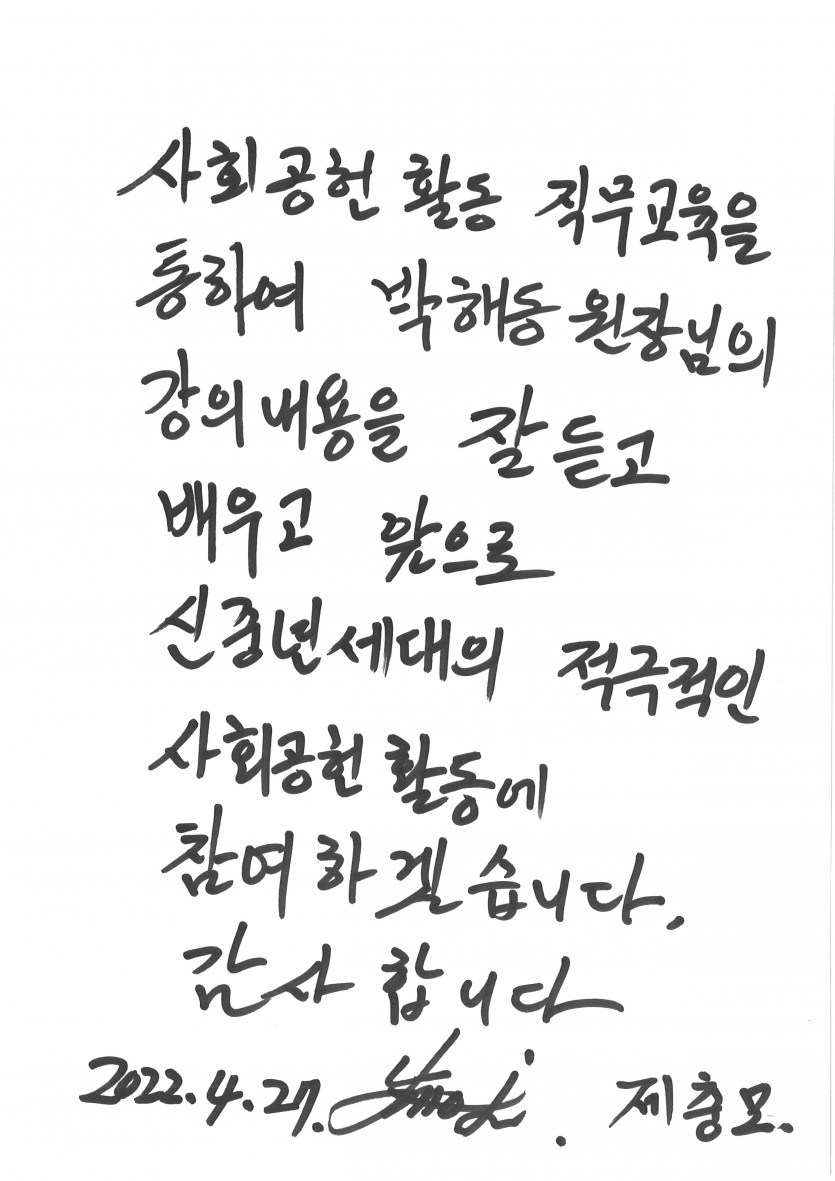 사회공헌 활동 직무교육을
통하여 박해동 원장님의
강의 내용을 잘 듣고
배우고 앞으로
신중년세대의 적극적인
사회공헌 활동에
참여하겠습니다.
감사합니다
2022.4.27. 제충모.